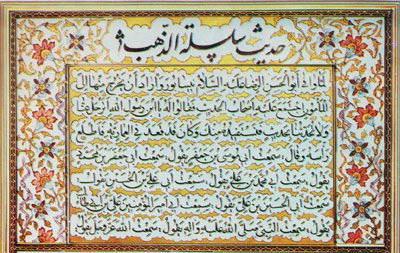 حديث سلسلة الذهب
لما وافى أبو الحسن الرضا عليه السلام نيسابور وأراد أن يخرج منها إلى
اجتمع عليه أصحاب الحديث فقالوا له يا ابن رسول الله ترحل عنا
ولا تحدثنا بحديث فنستفيده منك وكان قد قعد في العمارية فأطلع
رأسه وقال سمعت أبي موسى بن جعفر يقول سمعت أبي جعفر بن محمد
يقول سمعت أبي محمد بن علي يقول سمعت أبي علي بن الحسين يقول
سمعت أبي الحسين بن علي يقول سمعت أبي أمير المؤمنين علي بن أبي طالب
يقول سمعت النبي صلى الله عليه وآله يقول سمعت الله عز وجل يقول